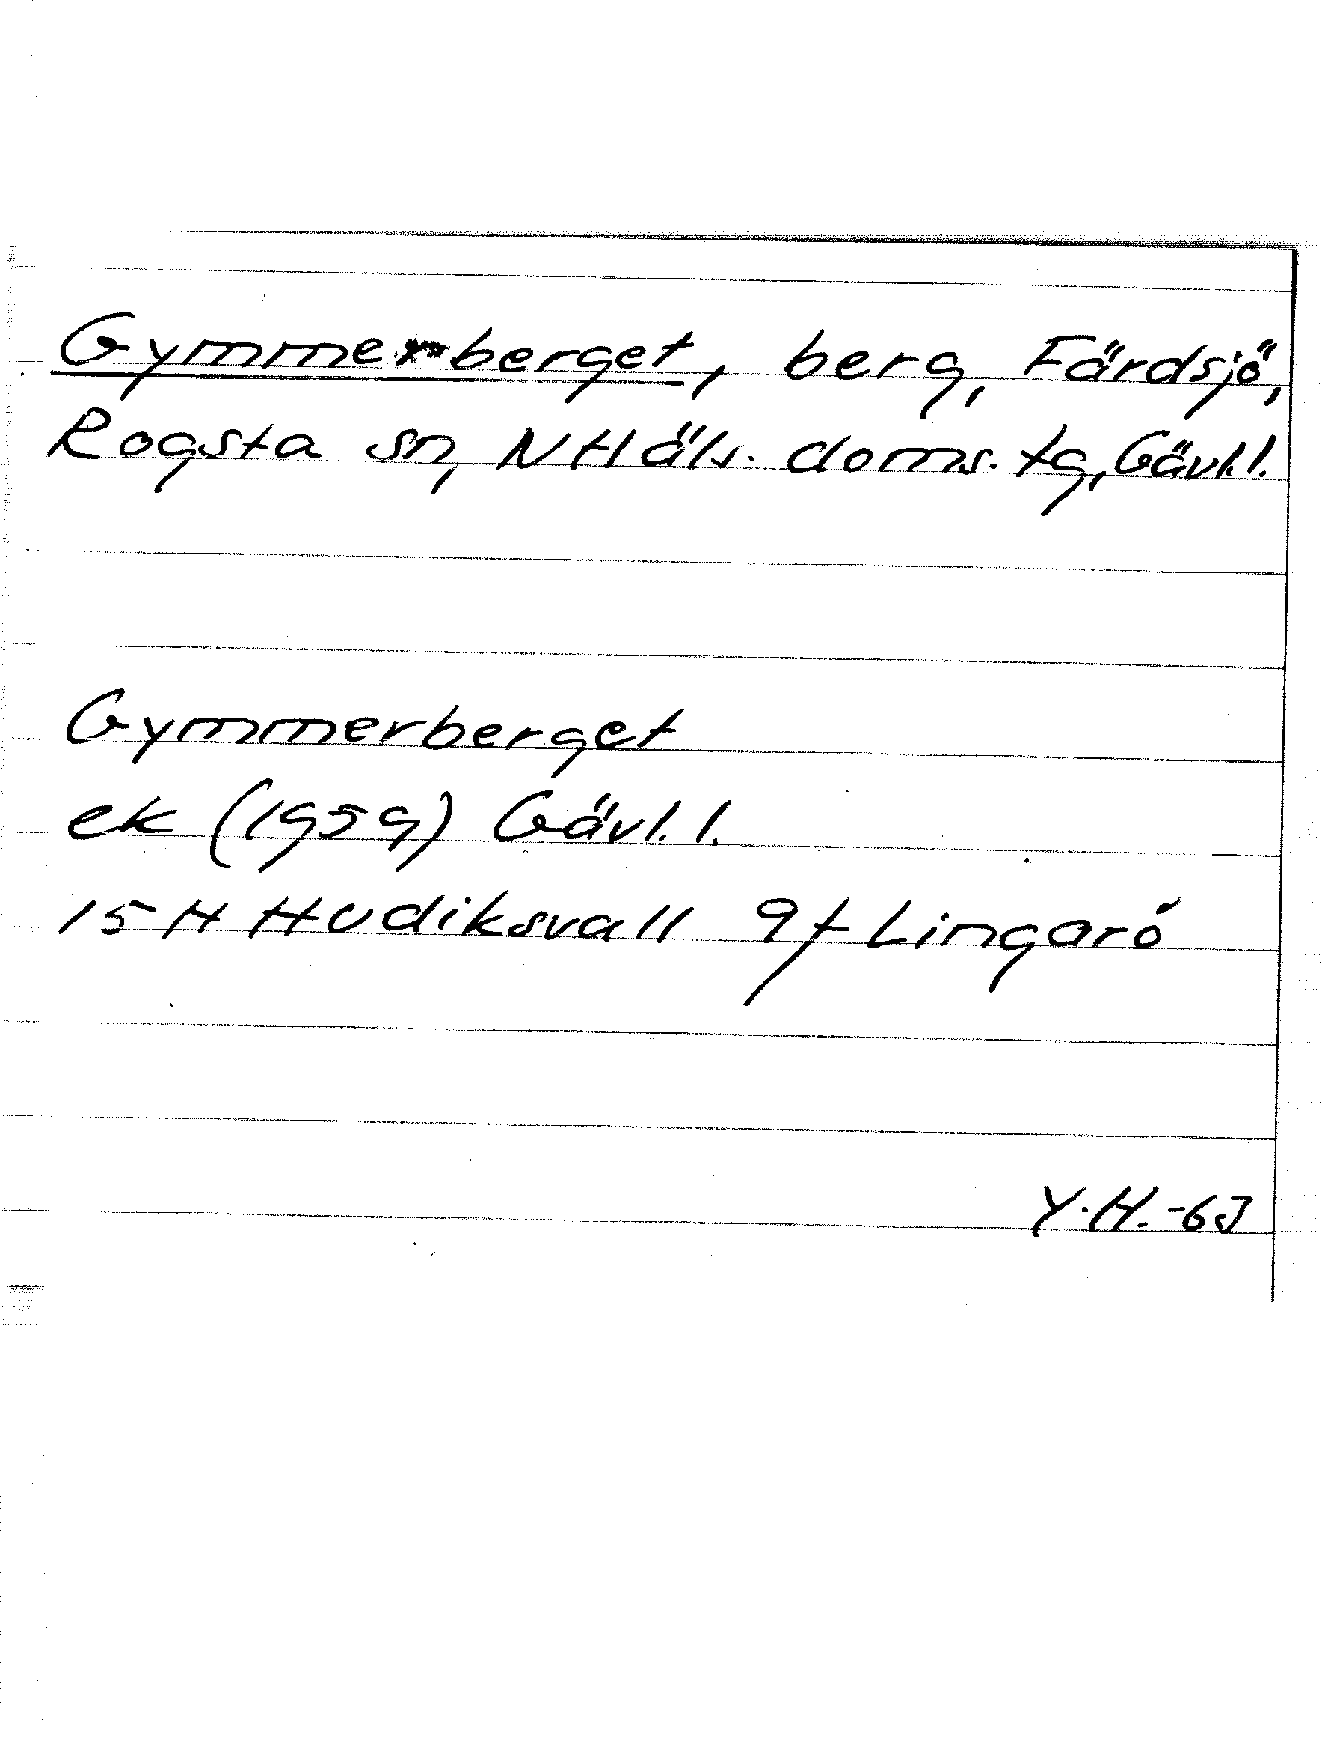 Gymmerberget, berg, Färdsjö,
Rogsta sn, NHäls. doms. tg, Gävl.l.
Gymmerberget
ek (1959) Gävl.l.
15 H Hudiksvall 9f Lingarö
Y.H. -63